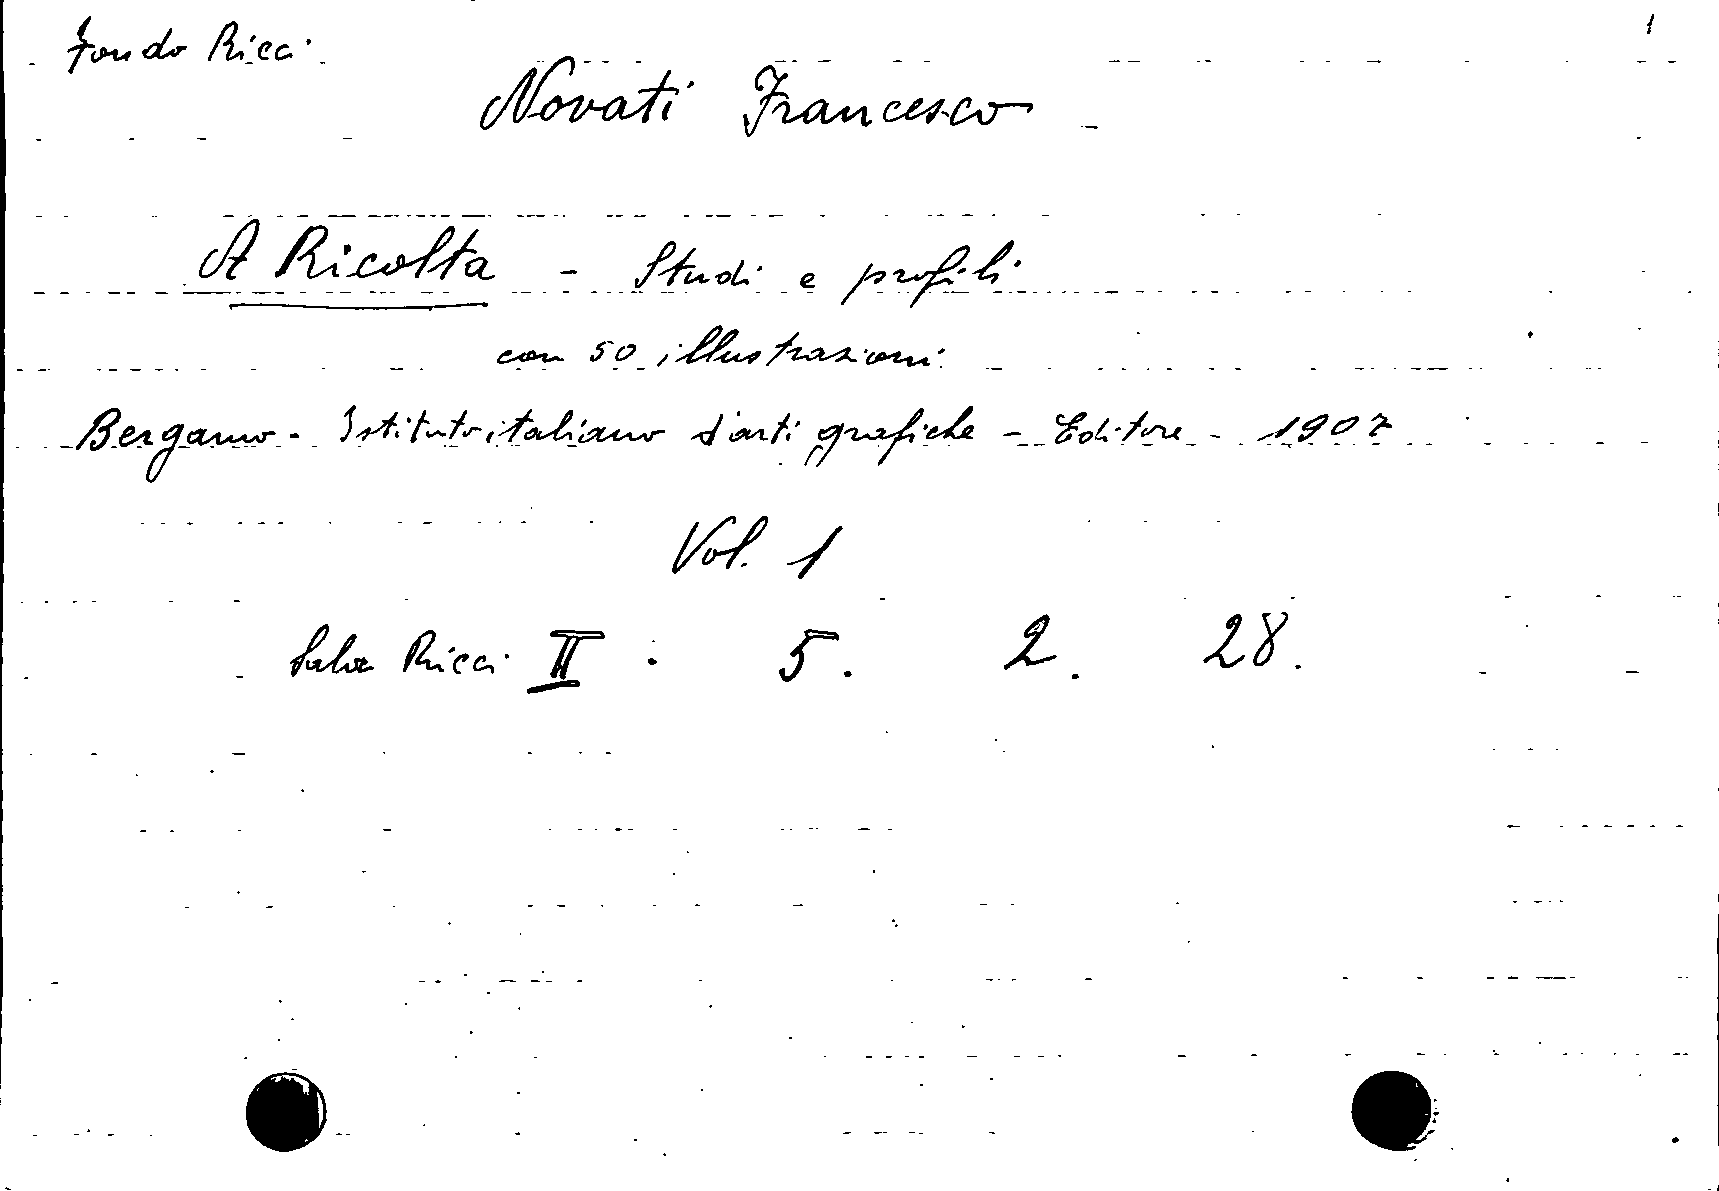 Fondo Ricci 1
Novati Francesco
A Ricolta - Studi e profili
con 50 illustrazioni
Bergamo - Istituto italiano d'arti grafiche - Editore - 1907
Vol. 1
Sala Ricci II : 5. 2. 28.